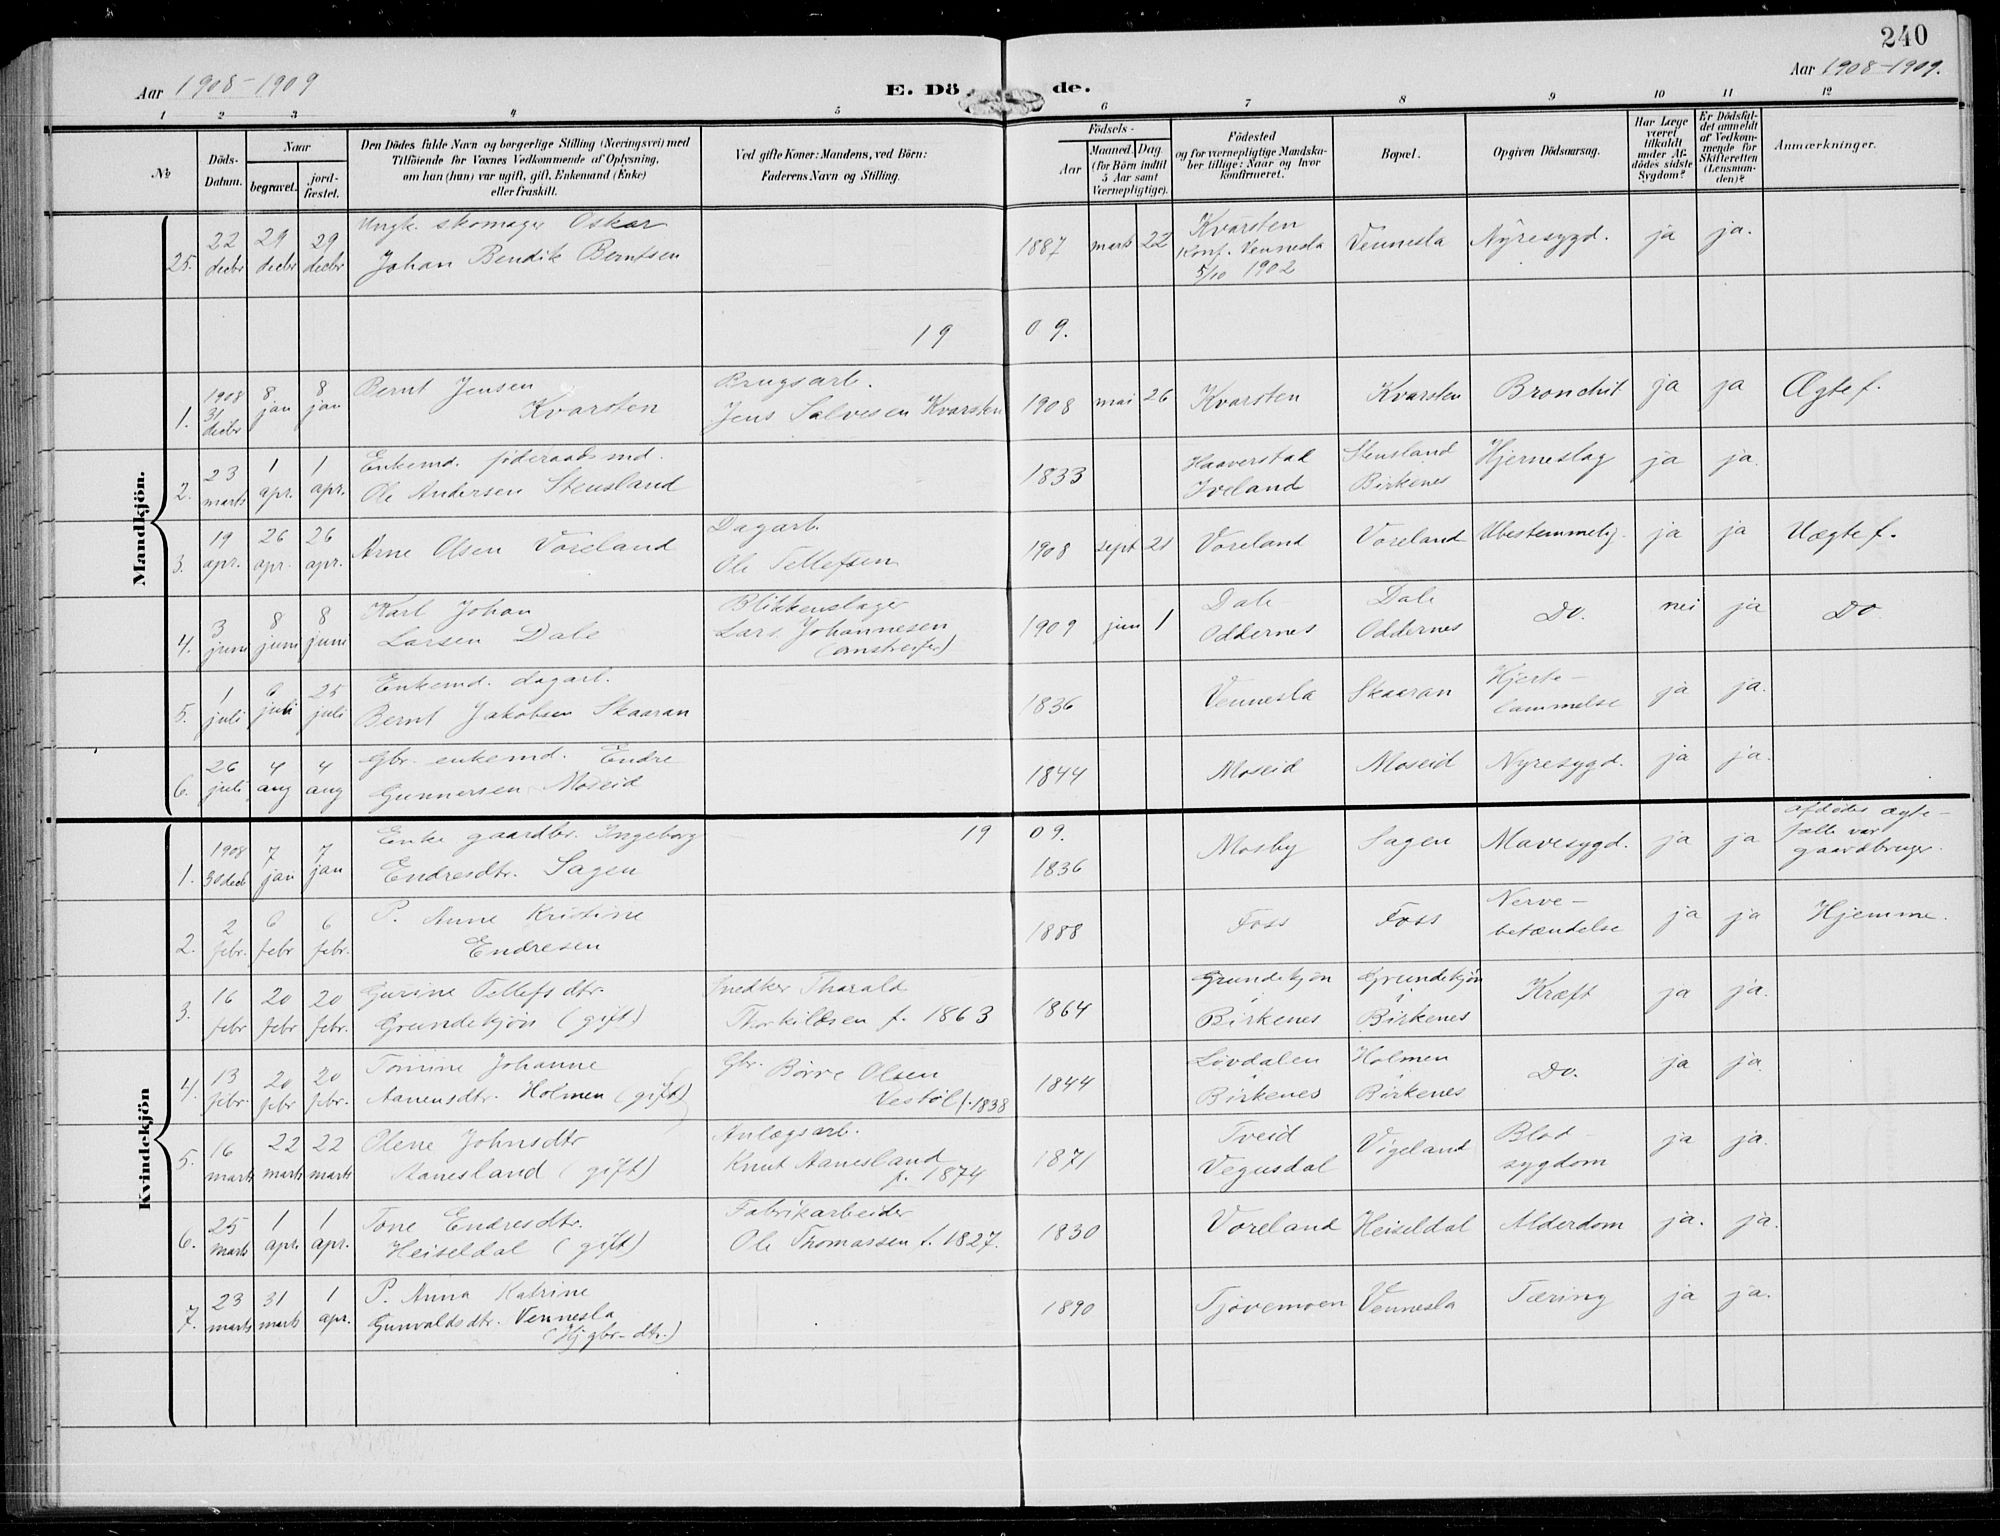 240
Aar 1908-1909
E. Döde.
Aar 1908-1909.
1 2 3 4 5 6 7 8 9 10 11 12
№
Döds-Datum.
Naar
begravet.
jordfæstet.
Den Dödes fulde Navn og borgerlige Stilling (Næringsvei) med
Tilföiende for Voxnes Vedkommende af Oplysning,
om han (hun) var ugift, gift, Enkemand (Enke)
eller fraskilt.
Ved gifte Koner: Mandens, ved Börn:
Faderens Navn og Stilling.
Födsels-
Aar
Maaned. Dag.
(for Börn indtil
5 Aar samt
Værnepligtige).
Födested
og for værnepligtige Mandskaber tillige: Naar og hvor
konfirmeret.
Bopæl.
Opgiven Dödsaarsag.
Har Læge
været
tilkaldt
under Afdödes sidste
Sygdom?
Er Dödsfaldet anmeldt
af Vedkommende for
Skifteretten
(Lensmanden)?
Anmærkninger.
Mandkjön.
25. 22 decbr 29 decbr 29 decbr Ungk. skomager Oskar
Johan Bendik Berntsen 1887 mars 22 Kvarsten
Konf. Vennesla
5/10 1902 Vennesla Nyresygd. ja ja.
1909.
1. 1908 31 decbr 8 jan 8 jan Bernt Jensen
Kvarsten Brugsarb.
Jens Salvesen Kvarsten 1908 mai 26 Kvarsten Kvarsten Bronchit ja ja Ægtef.
2. 23 marts 1 apr. 1 apr. Enkemd. føderaadsmd.
Ole Andersen Stensland 1833 Haaverstad
Iveland Stensland
Birkenes Hjerneslag ja ja.
3. 19 apr. 26 apr. 26 apr. Arne Olsen Voreland Dagarb.
Ole Tellefsen 1908 sept 21 Voreland Voreland Ubestemmelig. ja ja Uægtef.
4. 3 juni 8 juni 8 juni Karl Johan
Larsen Dale Blikkenslager
Lars Johannesen
(omstreifer) 1909 juni 1 Dale
Oddernes Dale
Oddernes Do. nei ja Do
5. 1 juli 6 juli 25 juli Enkemd. dagarb.
Bernt Jakobsen Skaaran 1836 Vennesla Skaaran Hjerte-
lammelse ja ja.
6. 26 juli 4 aug 4 aug Gbr. enkemd. Endre
Gunnersen Moseid 1844 Moseid Moseid Nyresygd. ja ja.
Kvindekjön
1909.
1. 1908 30 decb 7 jan 7 jan Enke gaardbr. Ingeborg
Endresdtr. Sagen 1836 Mosby Sagen Mavesygd. ja ja afdødes ægte-
fælle var
gaardbruger.
2. 2 febr. 6 febr 6 febr. P. Anne Kristine
Endresen 1888 Foss Foss Nerve-
betændelse ja ja Hjemme.
3. 16 febr 20 febr 20 febr. Gurine Tellefsdtr.
Grundekjøn (gift) Snedker Tharald
Thorkildsen f. 1863 1864 Grundekjøn
i
Birkenes Grundekjøn
i
Birkenes Kræft ja ja.
4. 13 febr. 20 febr 20 febr. Tomine Johanne
Aanensdtr. Holmen (gift) Gbr. Børre Olsen
Vestøl f. 1838 1844 Løvdalen
Birkenes Holmen
i
Birkenes Do. ja ja.
5. 16 marts 22 marts 22 marts Olene Johnsdtr
Aanesland (gift) Anlægsarb.
Knut Aanesland
f. 1874 1871 Tveid
Vegusdal Vigeland Blod-
sygdom ja ja.
6. 25 marts 1 apr. 1 apr. Tone Endresdtr.
Heiseldal (gift) Fabrikarbeider
Ole Thomassen f. 1827. 1830 Voreland Heiseldal Alderdom ja. ja.
7. 23 marts 31 marts 1 apr. P. Anna Katrine
Gunvaldsdtr. Vennesla
(Hj gbr-dtr.) 1890 Tjovemoen Vennesla Tæring ja ja.